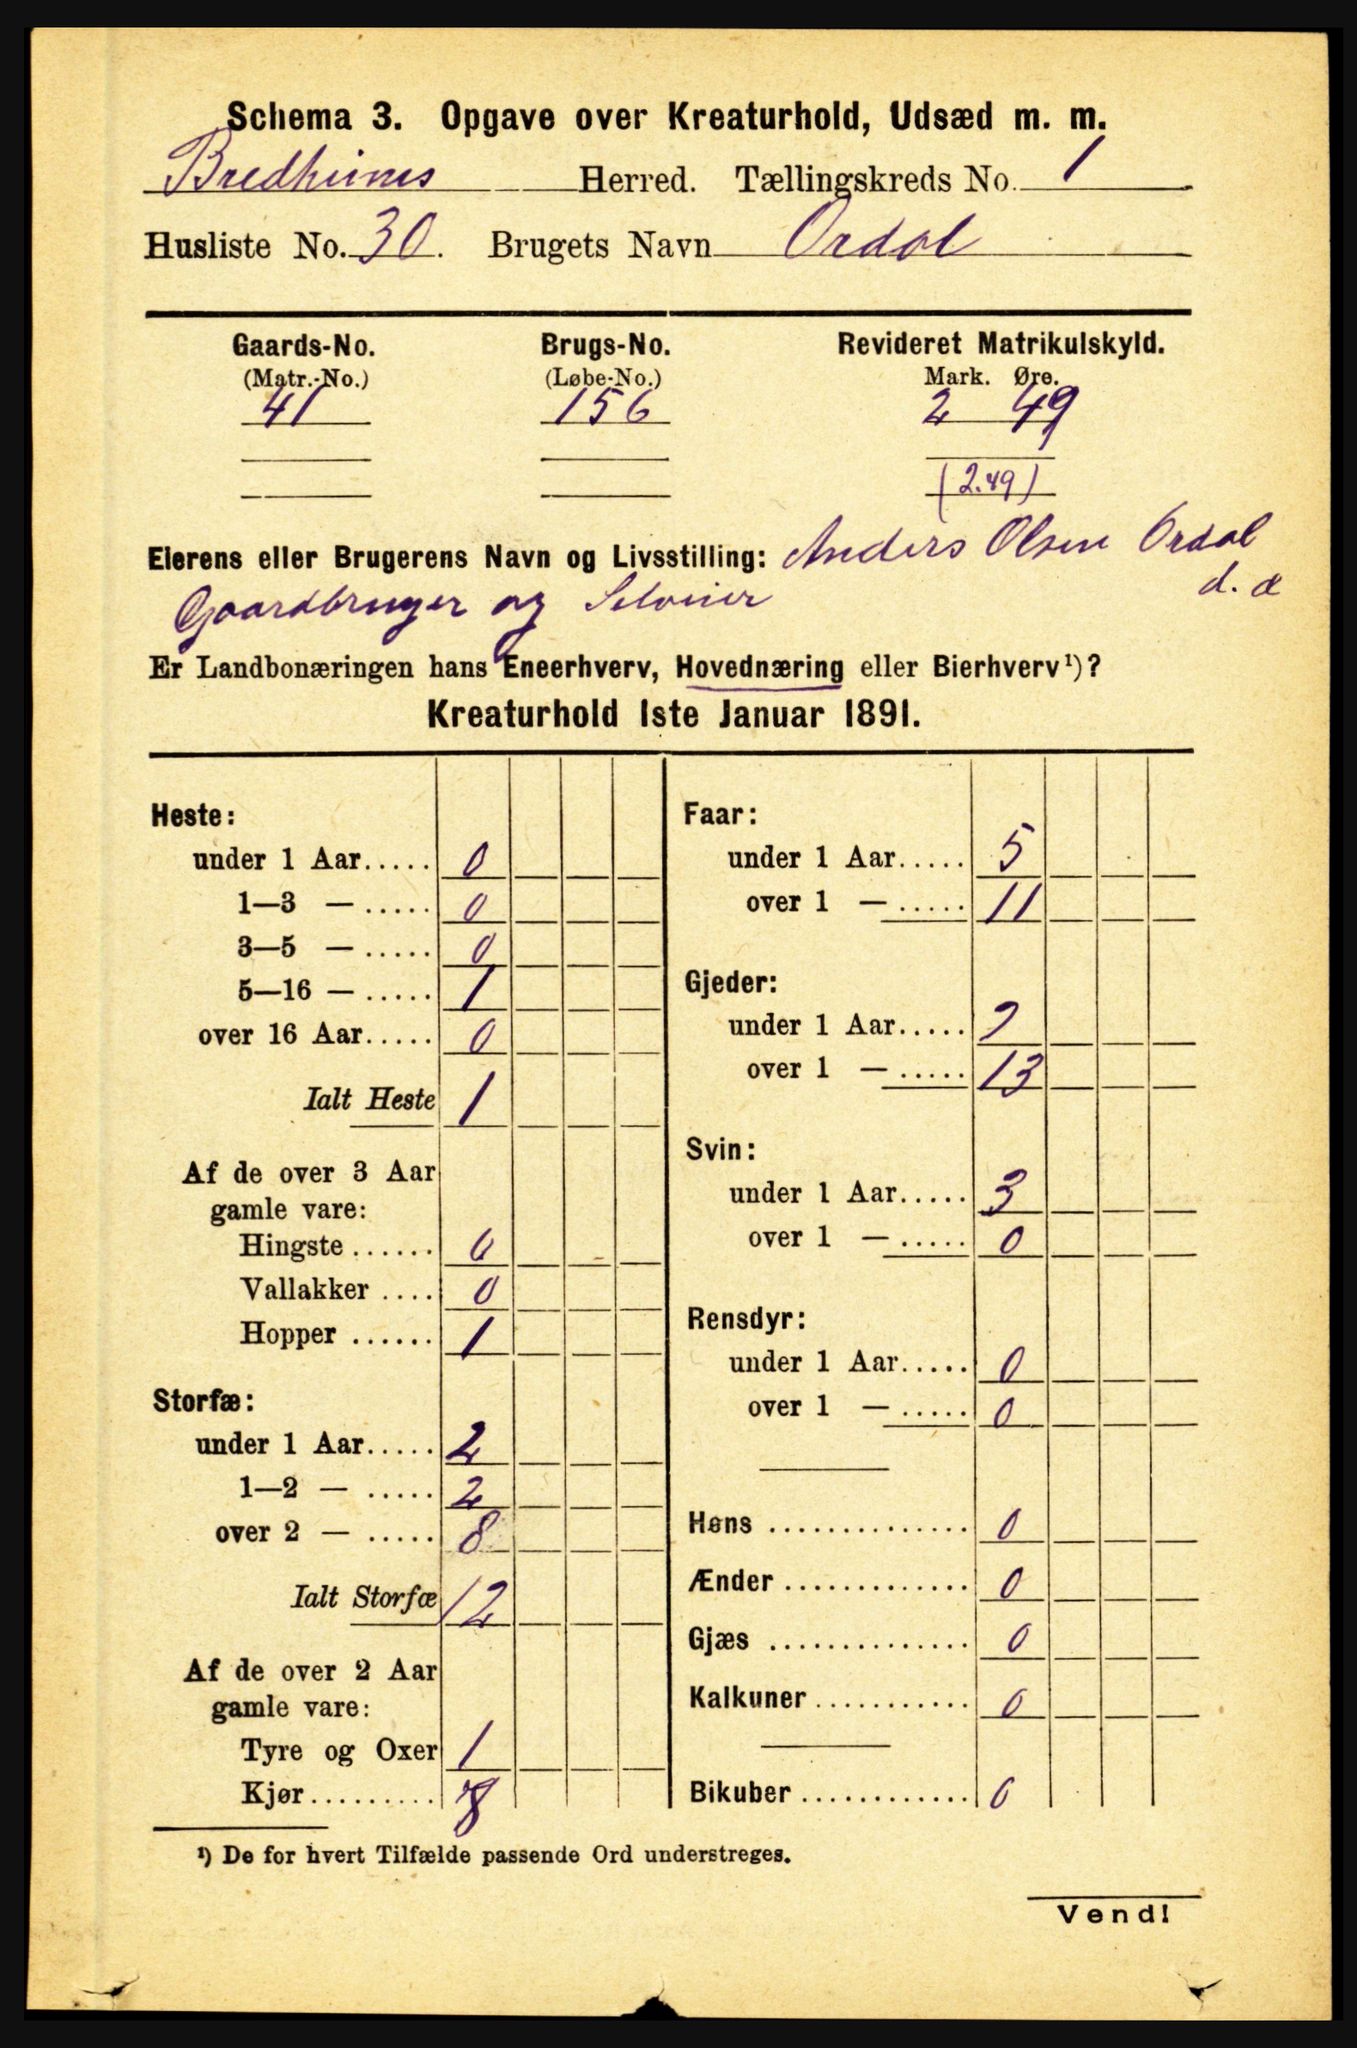 Schema 3. Opgave over Kreaturhold, Udsæd m. m.
Bredheims Herred. Tællingskreds No. 1
Husliste No. 30. Brugets Navn Ordal
Gaards-No. Brugs-No. Revideret Matrikulskyld.
(Matr.-No.) (Løbe-No.) Mark. Øre.
41 156 2 49
(2.49)
Eierens eller Brugerens Navn og Livsstilling: Anders Olsen Ordal
Gaardbruger og Selveier d. æ
Er Landbonæringen hans Eneerhverv, Hovednæring eller Bierhverv¹)?
Kreaturhold 1ste Januar 1891.
Heste:
under 1 Aar..... 0
1—3 — ..... 0
3—5 — ..... 0
5—16 — ..... 1
over 16 Aar..... 0
Ialt Heste 1
Af de over 3 Aar
gamle vare:
Hingste ...... 0
Vallakker .... 0
Hopper ...... 1
Storfæ:
under 1 Aar..... 2
1—2 — ..... 2
over 2 — ..... 8
Ialt Storfæ 12
Af de over 2 Aar
gamle vare:
Tyre og Oxer 1
Kjør.........
Faar:
under 1 Aar..... 5
over 1 — ..... 11
Gjeder:
under 1 Aar.....
over 1 — ..... 13
Svin:
under 1 Aar..... 3
over 1 — ..... 0
Rensdyr:
under 1 Aar..... 0
over 1 — ..... 0
Høns .............. 0
Ænder ............. 0
Gjæs .............. 0
Kalkuner ........... 0
Bikuber ............ 0
¹) De for hvert Tilfælde passende Ord understreges.
Vend!